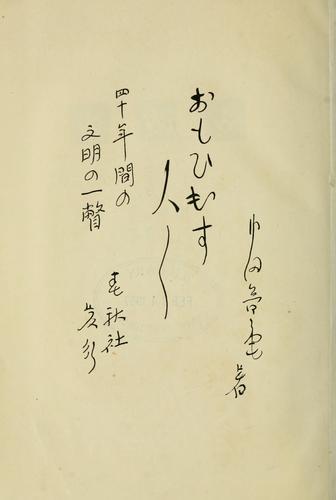 内田魯庵 著
おもひ出す
人〱
四十年間の
文明の一瞥
春秋社
發行